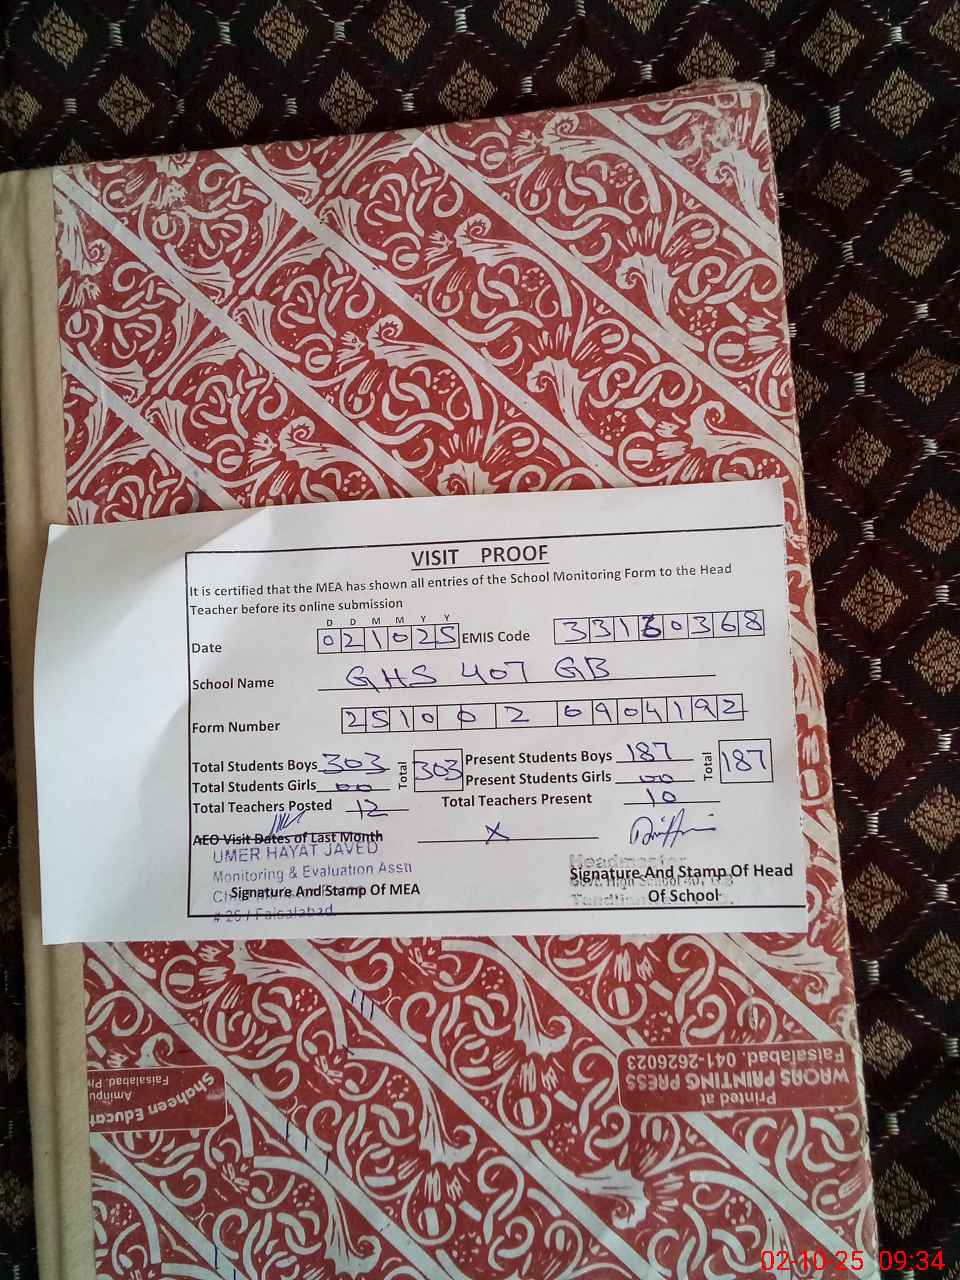 VISIT PROOF
It is certified that the MEA has shown all entries of the School Monitoring Form to the Head
Teacher before its online submission
D D M M Y Y
Date 021025 EMIS Code 33130368
School Name GHS 407 GB
Form Number 251002 0904192
Total Students Boys 303 Total 303 Present Students Boys 187 Total 187
Total Students Girls 00 Present Students Girls 00
Total Teachers Posted 12 Total Teachers Present 10
AEO Visit Dates of Last Month X
UMER HAYAT JAVED
Monitoring & Evaluation Asstt
Signature And Stamp Of MEA
# 25 / Faisalabad
Headmaster
Signature And Stamp Of Head
Of School
Govt. High School
Printed at
WAQAS PRINTING PRESS
Faisalabad. 041-2626023
Shaheen Educat
Aminpu
Faisalabad. Ph
02-10-25 09:34